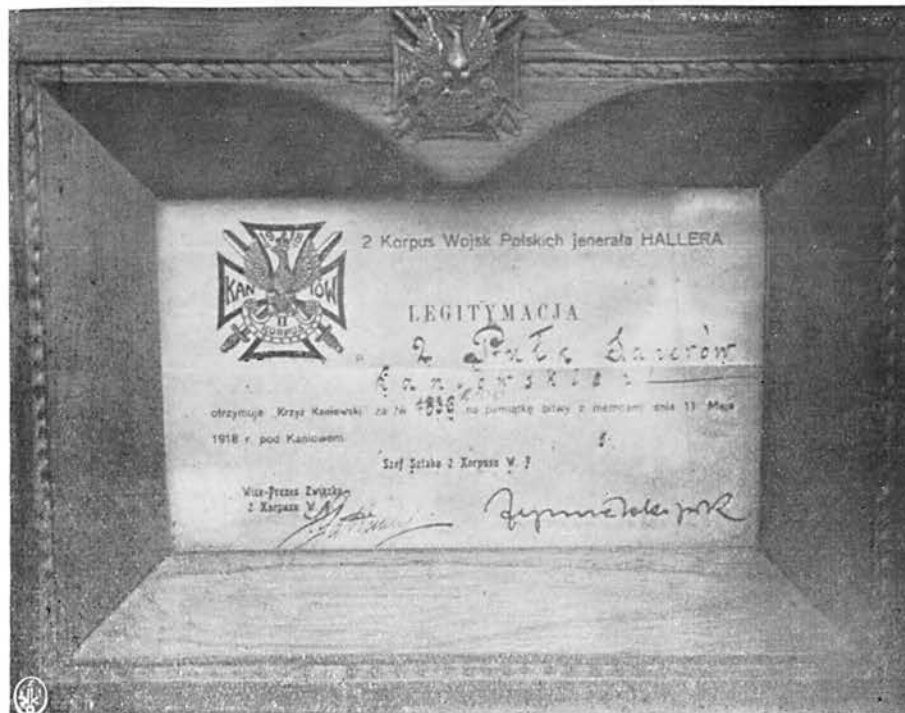 1918
KANIÓW
II
KORPUS
2 Korpus Wojsk Polskich jenerała HALLERA
LEGITYMACJA
2 Pułk Saperów
Kaniowskich
otrzymuje „Krzyż Kaniowski za № na pamiątkę bitwy z niemcami dnia 11 Maja
1918 r. pod Kaniowem.
Szef Sztabu 2 Korpusu W. P
Wice-Prezes Związku
2 Korpusu W. P.